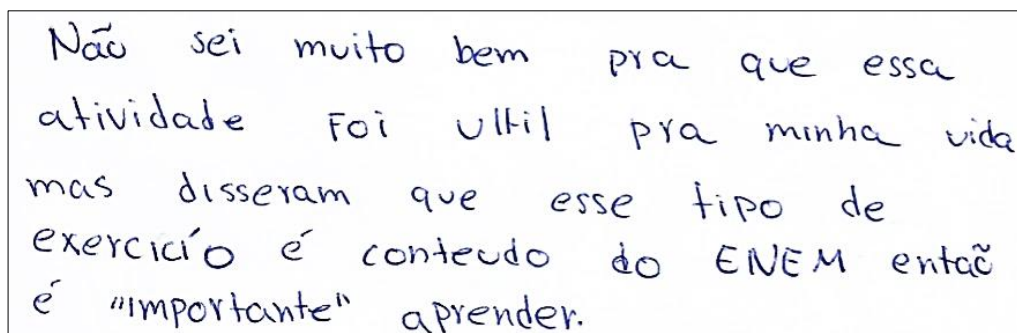 Não sei muito bem pra que essa
atividade foi ultil pra minha vida
mas disseram que esse tipo de
exercicío é conteudo do ENEM então
é "importante" aprender.